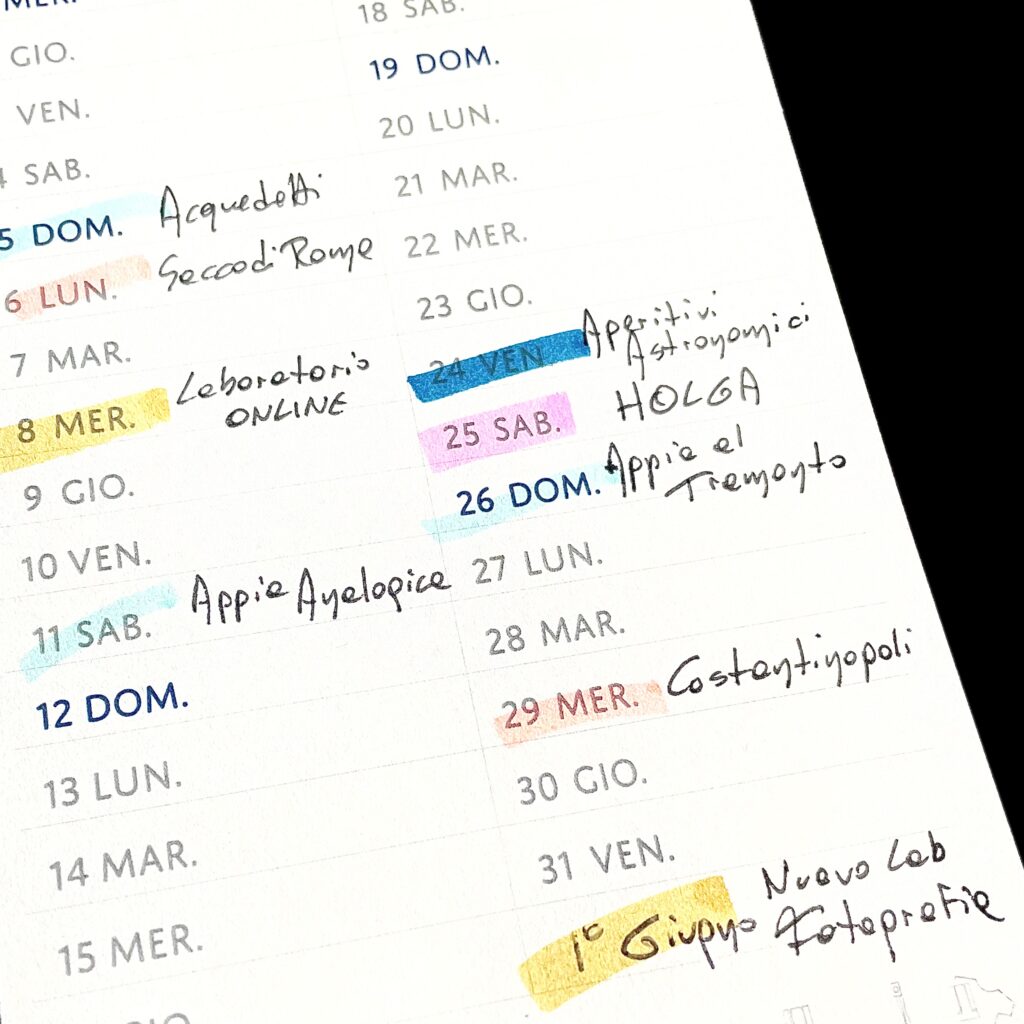 MER.
GIO.
VEN.
4 SAB.
5 DOM. Acquedotti
6 LUN. Sacco di Roma
7 MAR.
8 MER. Laboratorio
ONLINE
9 GIO.
10 VEN.
11 SAB. Appia Analogica
12 DOM.
13 LUN.
14 MAR.
15 MER.
GIO
18 SAB.
19 DOM.
20 LUN.
21 MAR.
22 MER.
23 GIO.
24 VEN Aperitivi
Astronomici
25 SAB. HOLGA
26 DOM. Appia al
Tramonto
27 LUN.
28 MAR.
29 MER. Costantinopoli
30 GIO.
31 VEN.
1° Giugno Nuovo Lab
Fotografia